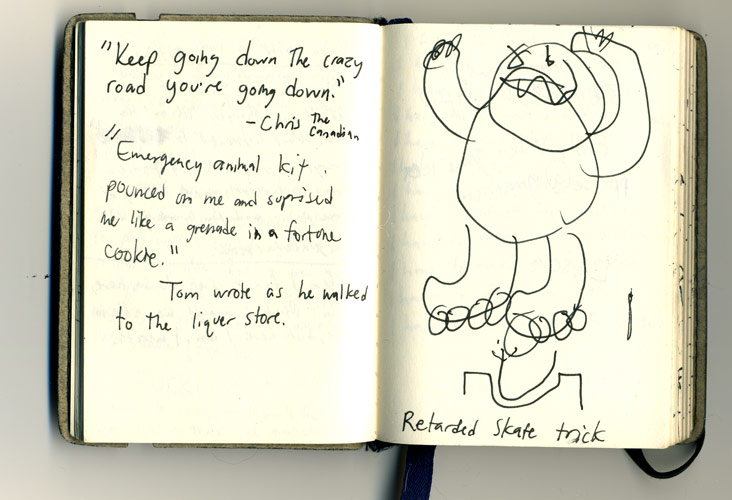 "Keep going down The crazy
road you're going down."
- Chris The
Canadian
"Emergency animal kit.
pounced on me and suprised
me like a grenade in a fortune
cookie."
Tom wrote as he walked
to the liquer store.
Retarded Skate trick